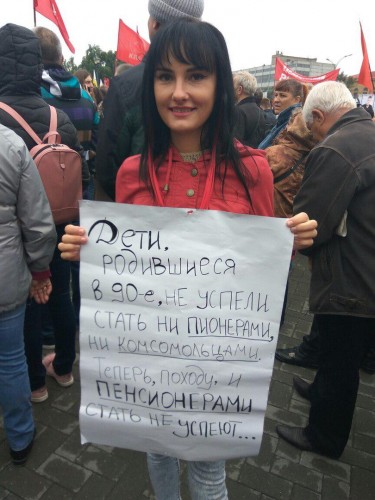 Дети,
РОДИВШИЕСЯ
в 90-е, НЕ УСПЕЛИ
СТАТЬ НИ ПИОНЕРАМИ,
НИ КОМСОМОЛЬЦАМИ.
Теперь, походу, и
ПЕНСИОНЕРАМИ
СТАТЬ НЕ УСПЕЮТ...